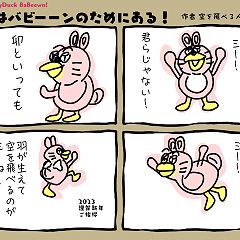 yDuck BaBeewn!
はバビーーンのためにある！
作者 空を飛べる
シーー、
君らじゃない！
卯といっても
シーー、
羽が生えて
空を飛べるのが
2023
謹賀新年
ご挨拶